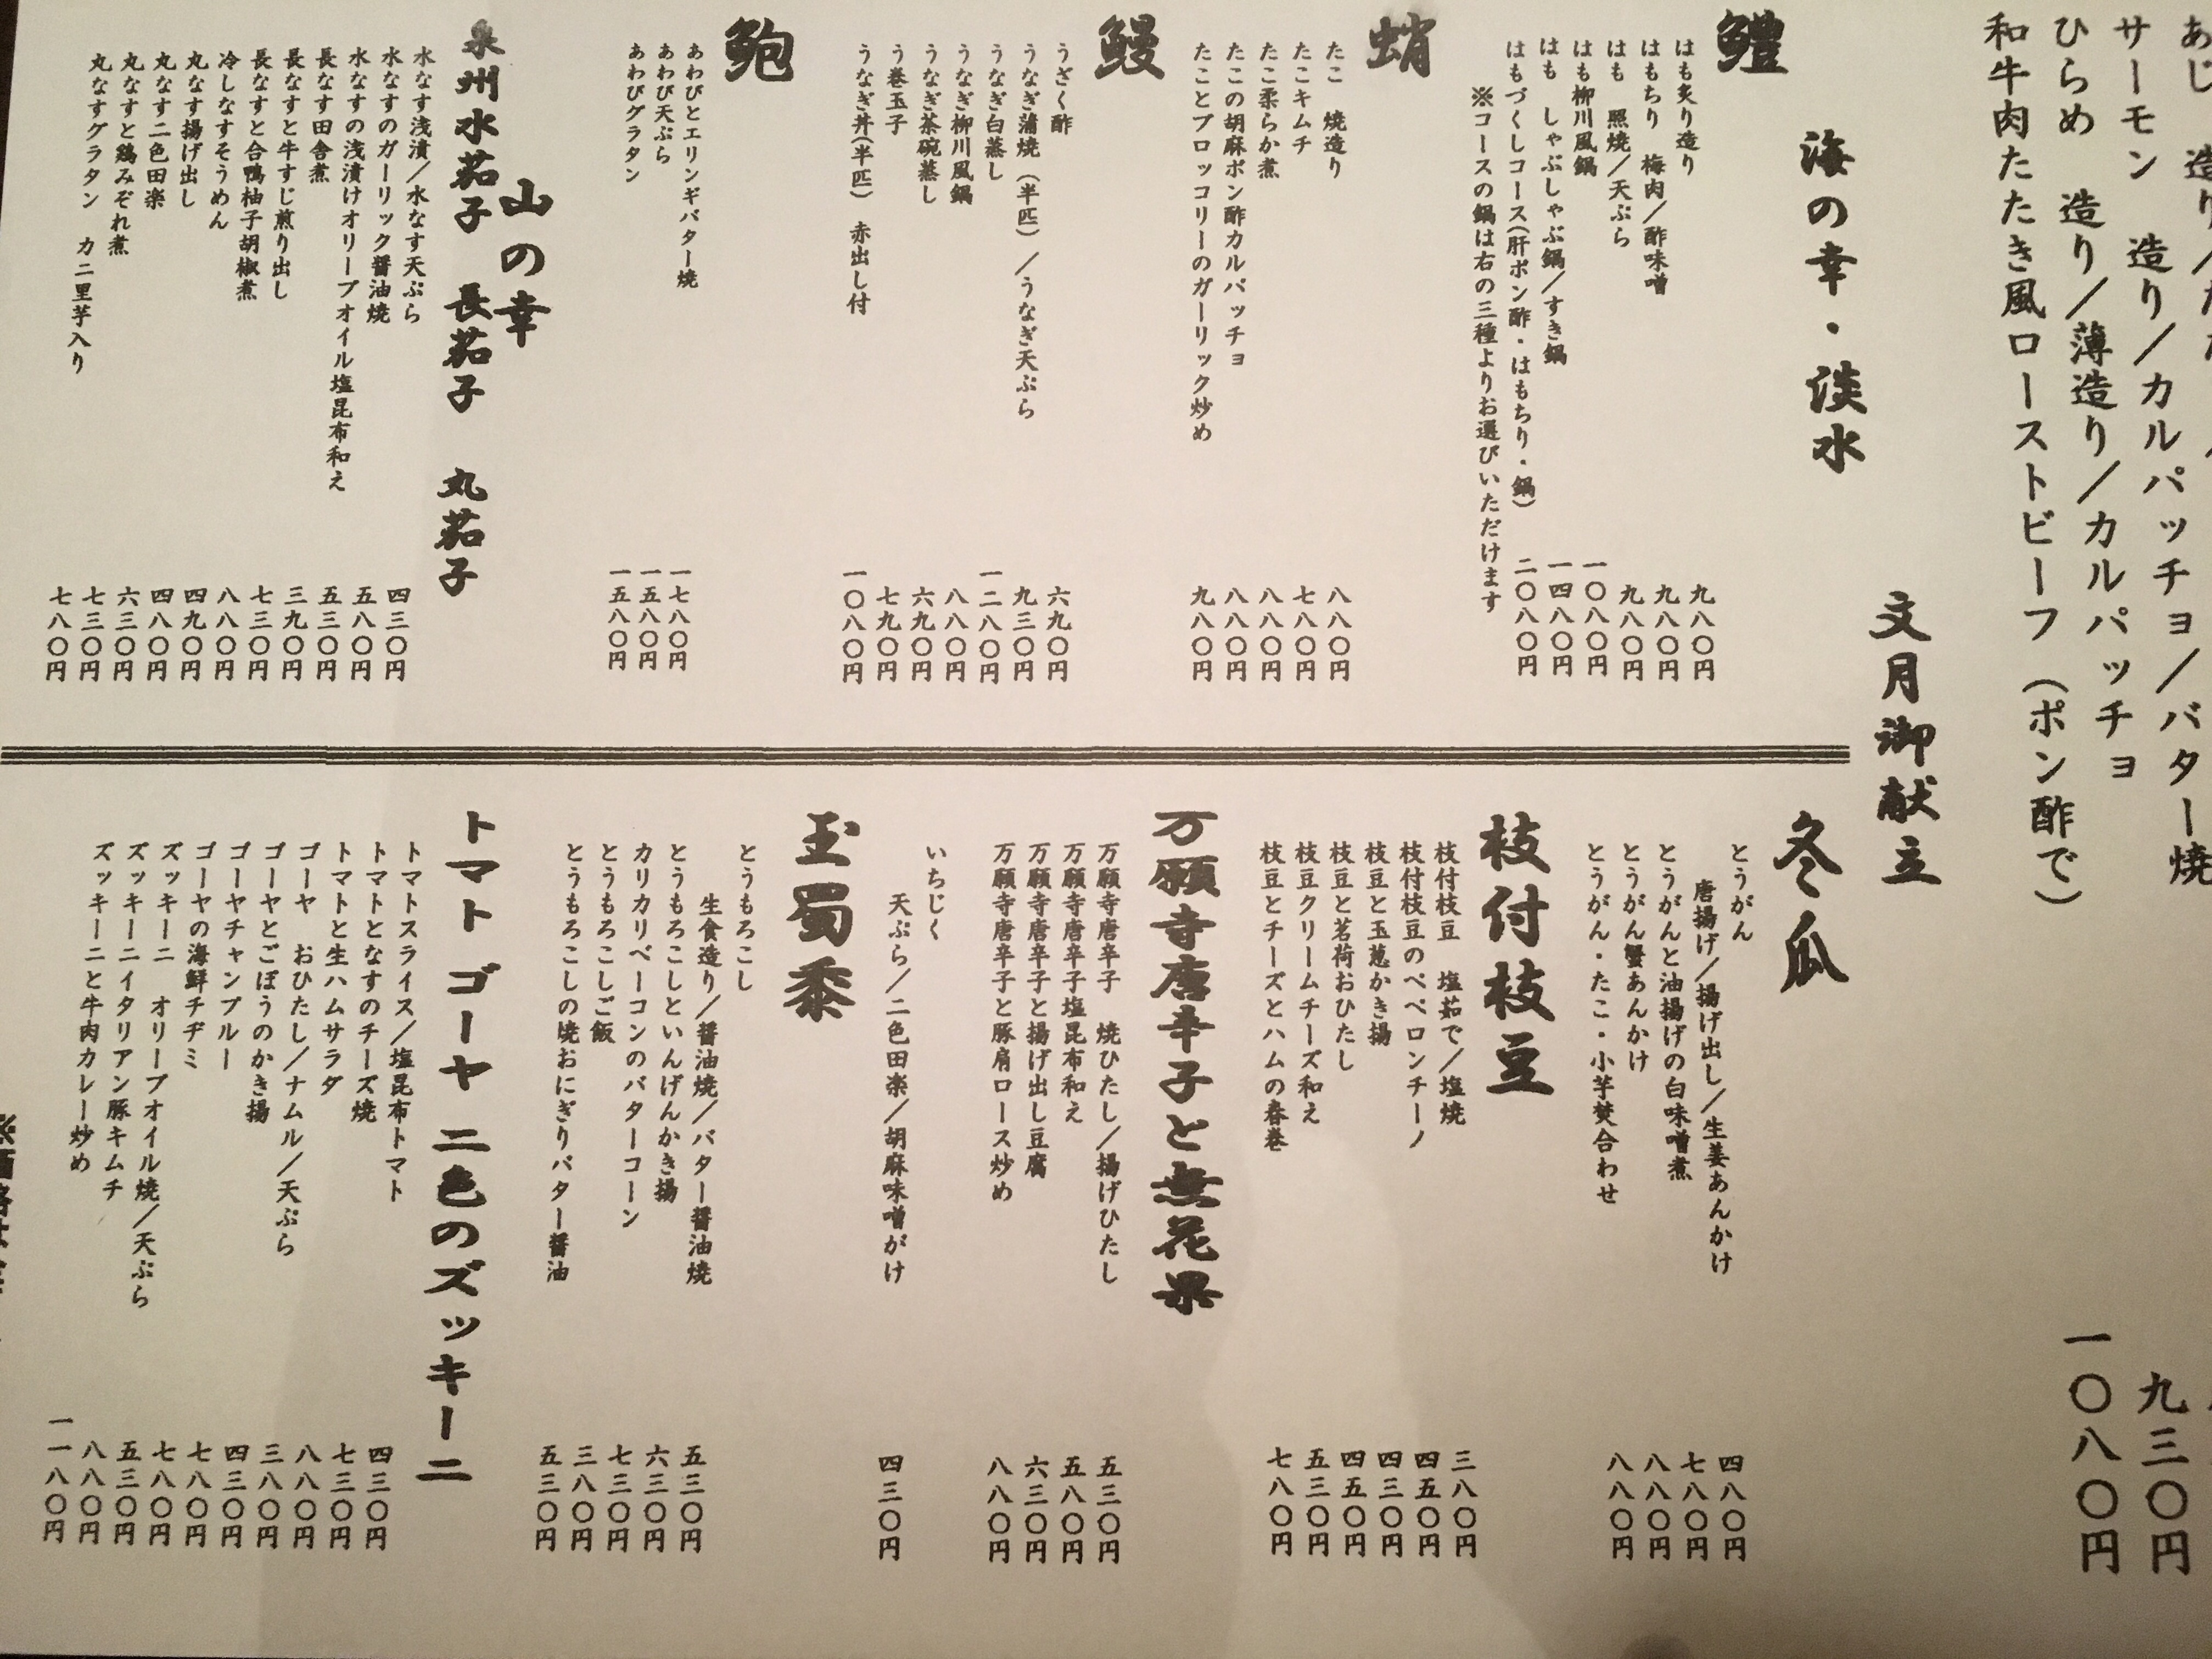 サーモン　造り／カルパッチョ／バター焼
ひらめ　造り／薄造り／カルパッチョ　九三〇円
和牛肉たたき風ローストビーフ（ポン酢で）　一〇八〇円
文月御献立
海の幸・淡水
鱧
はも炙り造り　九八〇円
はもちり　梅肉／酢味噌　九八〇円
はも　照焼／天ぷら　九八〇円
はも柳川風鍋　一〇八〇円
はも　しゃぶしゃぶ鍋／すき鍋　一四八〇円
はもづくしコース（肝ポン酢・はもちり・鍋）　二〇八〇円
※コースの鍋は右の三種よりお選びいただけます
蛸
たこ　焼造り　八八〇円
たこキムチ　七八〇円
たこ柔らか煮　八八〇円
たこの胡麻ポン酢カルパッチョ　八八〇円
たことブロッコリーのガーリック炒め　九八〇円
鰻
うざく酢　六九〇円
うなぎ蒲焼（半匹）／うなぎ天ぷら　九三〇円
うなぎ白蒸し　一二八〇円
うなぎ柳川風鍋　八八〇円
うなぎ茶碗蒸し　六九〇円
う巻玉子　七九〇円
うなぎ丼（半匹）　赤出し付　一〇八〇円
鮑
あわびとエリンギバター焼　一七八〇円
あわび天ぷら　一五八〇円
あわびグラタン　一五八〇円
山の幸
泉州水茄子　長茄子　丸茄子
水なす浅漬／水なす天ぷら　四三〇円
水なすのガーリック醤油焼　五八〇円
水なすの浅漬けオリーブオイル塩昆布和え　五三〇円
長なす田舎煮　三九〇円
長なすと牛すじ煎り出し　七三〇円
長なすと合鴨柚子胡椒煮　八八〇円
冷しなすそうめん　四九〇円
丸なす揚げ出し　四八〇円
丸なす二色田楽　六三〇円
丸なすと鶏みぞれ煮　七三〇円
丸なすグラタン　カニ里芋入り　七八〇円
冬瓜
とうがん
唐揚げ／揚げ出し／生姜あんかけ　四八〇円
とうがんと油揚げの白味噌煮　七八〇円
とうがん蟹あんかけ　八八〇円
とうがん・たこ・小芋焚合わせ　八八〇円
枝付枝豆
枝付枝豆　塩茹で／塩焼　三八〇円
枝付枝豆のペペロンチーノ　四五〇円
枝豆と玉葱かき揚　四三〇円
枝豆と茗荷おひたし　四五〇円
枝豆クリームチーズ和え　五三〇円
枝豆とチーズとハムの春巻　七八〇円
万願寺唐辛子と無花果
万願寺唐辛子　焼ひたし／揚げひたし　五三〇円
万願寺唐辛子塩昆布和え　五八〇円
万願寺唐辛子と揚げ出し豆腐　六三〇円
万願寺唐辛子と豚肩ロース炒め　八八〇円
いちじく
天ぷら／二色田楽／胡麻味噌がけ　四三〇円
玉蜀黍
とうもろこし
生食造り／醤油焼／バター醤油焼　五三〇円
とうもろこしといんげんかき揚　六三〇円
カリカリベーコンのバターコーン　七三〇円
とうもろこしご飯　三八〇円
とうもろこしの焼おにぎりバター醤油　五三〇円
トマト　ゴーヤ　二色のズッキーニ
トマトスライス／塩昆布トマト　四三〇円
トマトとなすのチーズ焼　七三〇円
トマトと生ハムサラダ　八八〇円
ゴーヤ　おひたし／ナムル／天ぷら　三八〇円
ゴーヤとごぼうのかき揚　四三〇円
ゴーヤチャンプルー　七八〇円
ゴーヤの海鮮チヂミ　七八〇円
ズッキーニ　オリーブオイル焼／天ぷら　五三〇円
ズッキーニイタリアン豚キムチ　八八〇円
ズッキーニと牛肉カレー炒め　一一八〇円